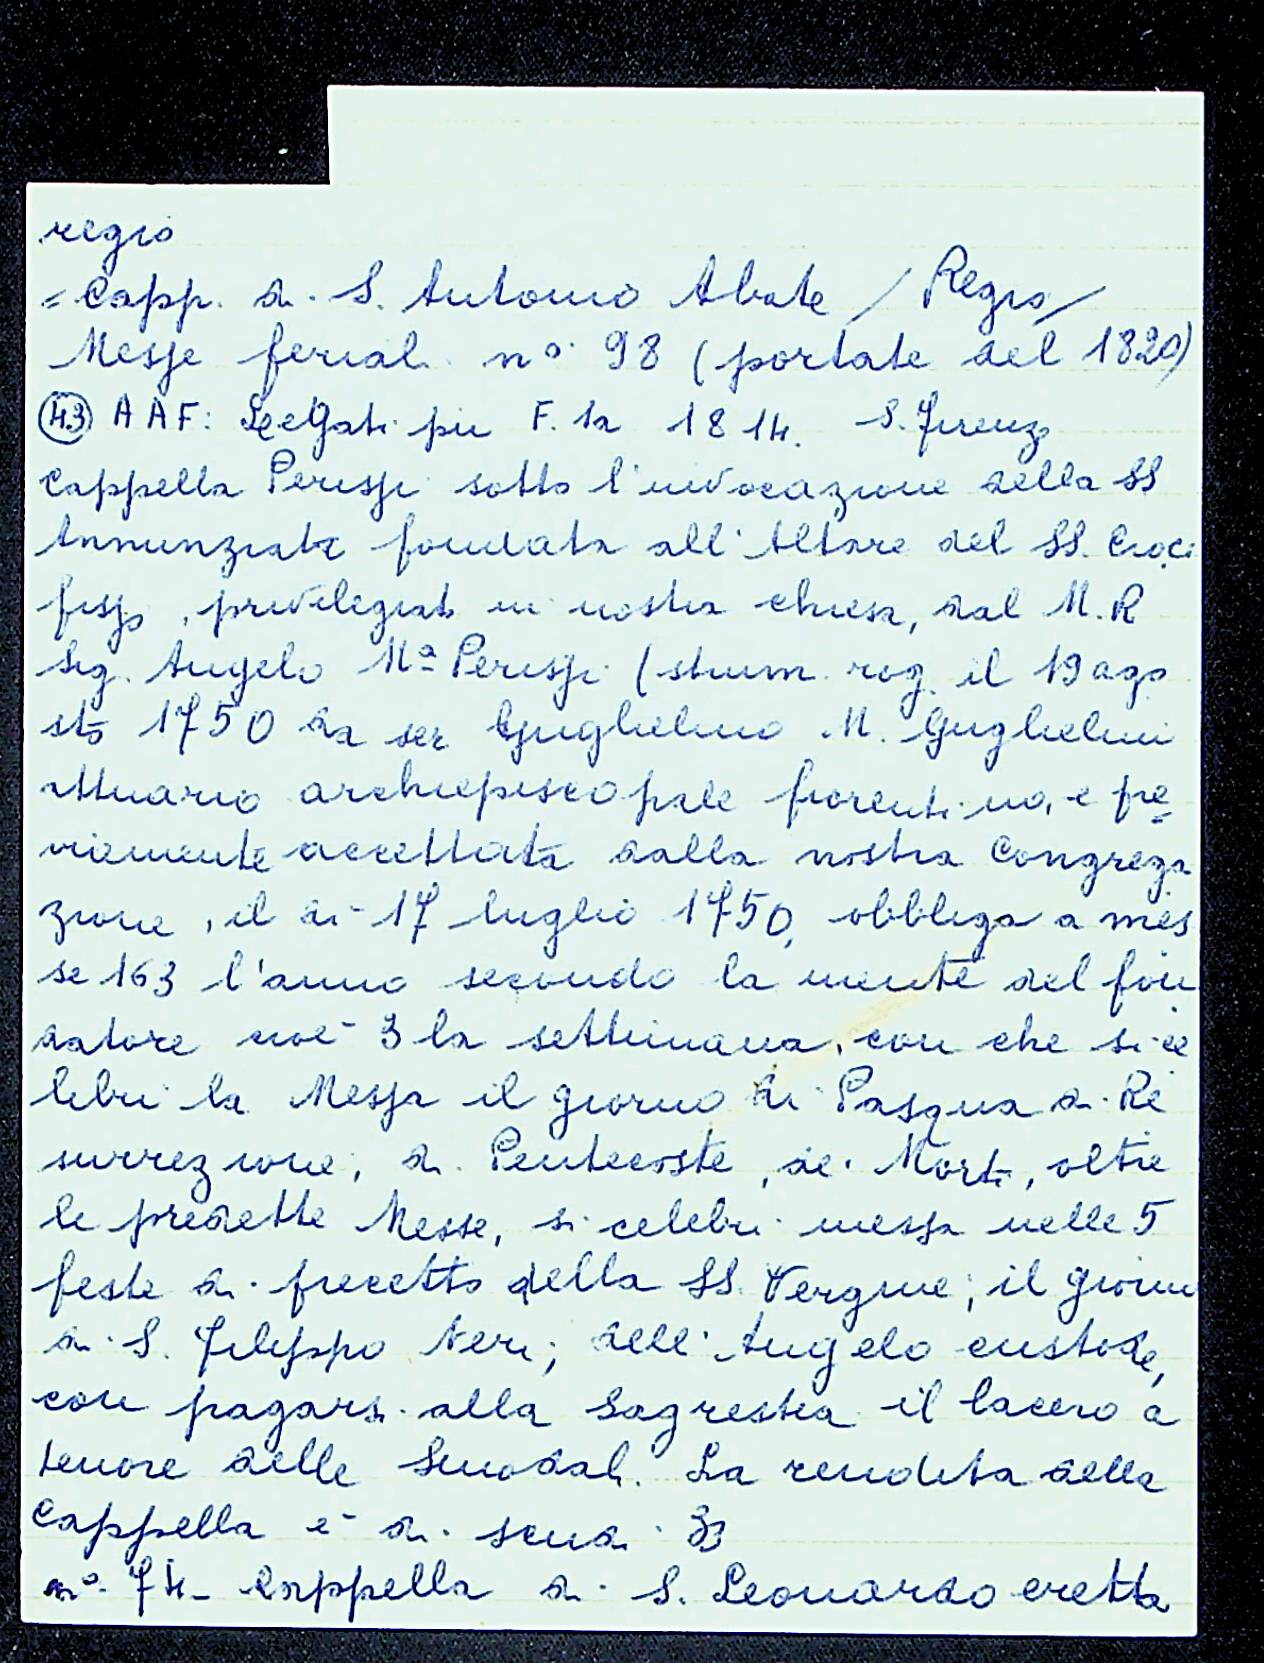 regio
= Capp. di S. Antonio Abate / Regio /
Messe feriali n° 98 (portate del 1820)
(43) AAF: Legati pii F. 12 1814. S. Firenze
Cappella Peressi sotto l'invocazione della SS
Annunziata fondata all'Altare del SS. Croci
fisso, privilegiato in nostra chiesa, dal M. R
Sig. Angelo Mª Peressi (strum. rog. il 19 ago
sto 1750 da ser Guglielmo M. Guglielmi
attuario archiepiscopale fiorentino, e pre
viamente accettata dalla nostra Congrega
zione, il dì 17 luglio 1750, obbliga a mes
se 163 l'anno secondo la mente del fon
datore cioè 3 la settimana, con che si ce
lebri la Messa il giorno di Pasqua di Re
surrezione, di Pentecoste, dei Morti, oltre
le predette Messe, si celebri messa nelle 5
feste di precetto della SS. Vergine; il giorno
di S. Filippo Neri; dell'Angelo custode,
con pagarsi alla Sagrestia il lacero a
tenore delle Sinodali. La rendita della
Cappella è di scudi 33
n° 74 Cappella di S. Leonardo eretta